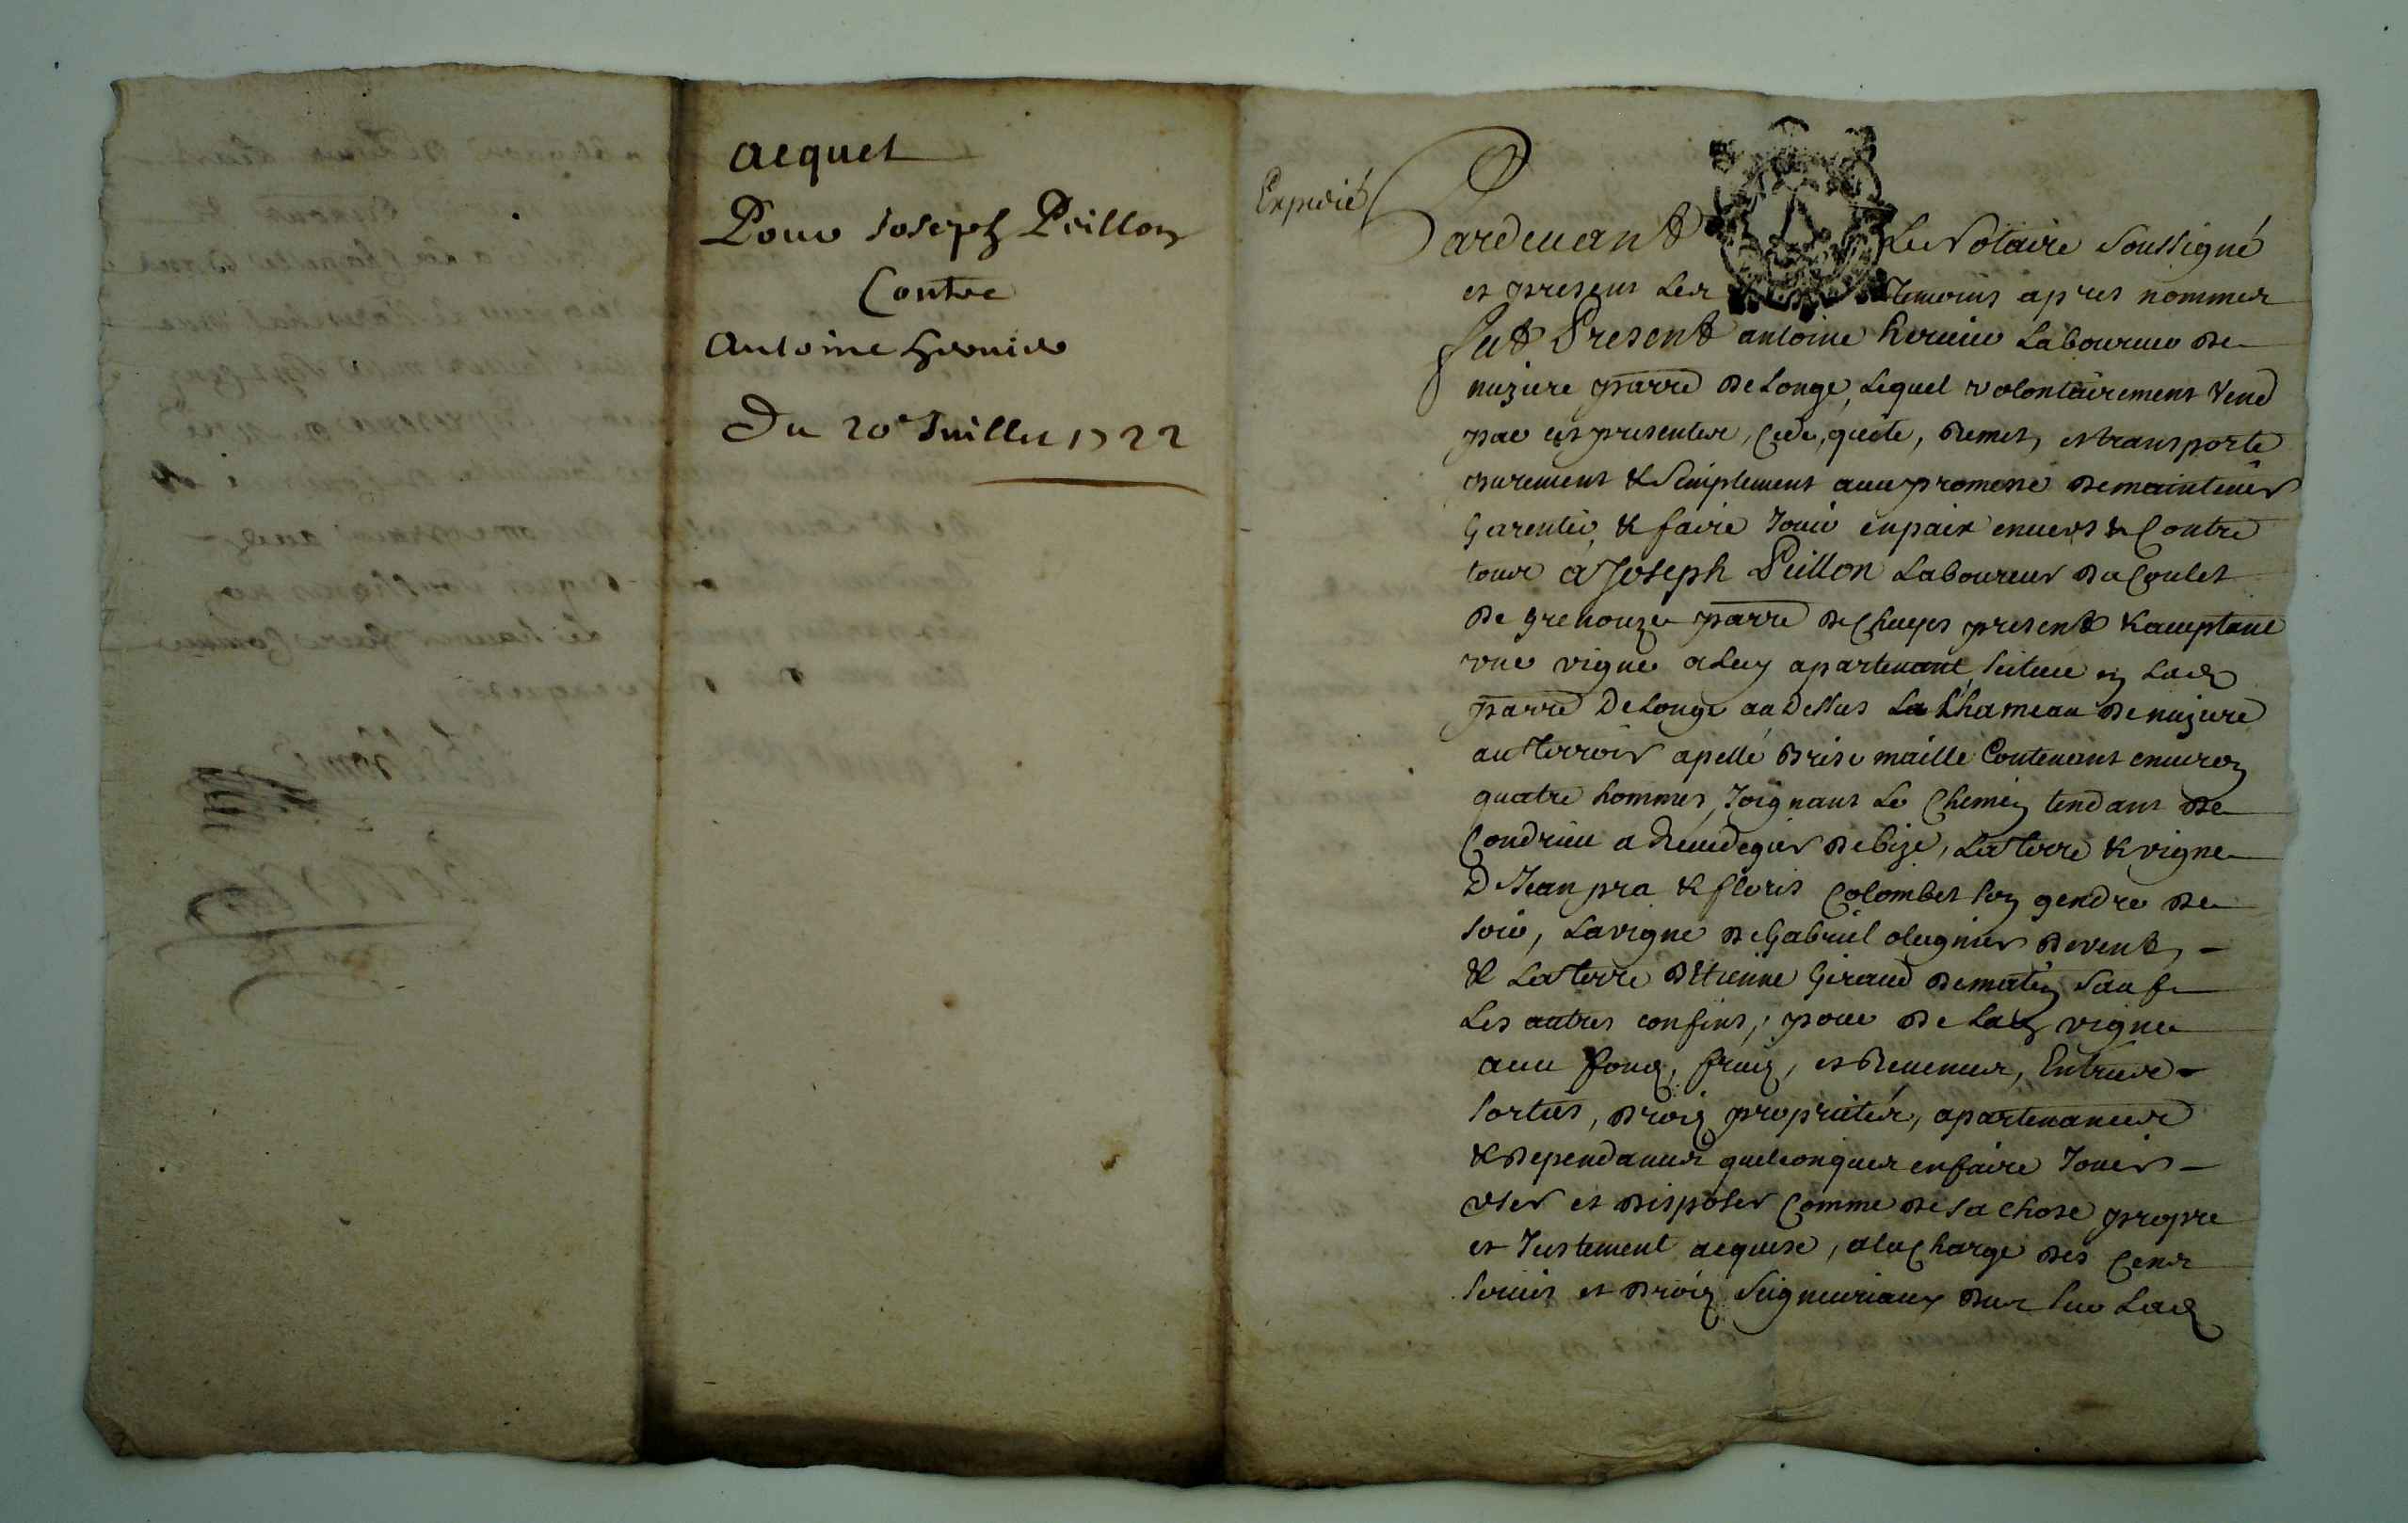 acquet
Pour Joseph Peillon
Contre
Antoine
Du 20e Juillet 1722
Expedié
Pardeuant Le Notaire Soussigné
et presens Les Temoins apres nommer
fut Present antoine Laboureur de
nuziere parre de Longe, Lequel volontairement Vend
par ces presentes, Cede, quite, Remet, et transporte
purement & Simplement auec promesse de maintenir
Garentir, & faire Jouir en paix enuers & Contre
tous à Joseph Peillon Laboureur du Coulet
de grenouze parre de Chuyes present & acceptant
vne vigne a Luy apartenant, scituee en Lad
parre De Longe au Dessus La L'hameau de nuziere
au Terroir apellé Brise maille Contenant enuiron
quatre hommes, Joignant Le Chemin tendant de
Condrieu a de bize, La Terre & vigne
D Jean pra & fleuris Colombet son gendre de
soir, La vigne de Gabriel de vent,
& La Terre D'Etienne Giraud de matin Sauf
Les autres confins, pour de Lad vigne
auec fong, fruig, et Reuenus, Entrees
sorties, droig proprietés, apartenances
& Dependances quelconques en faire Jouir
vser et disposer Comme de sa chose propre
et Justement acquise, a la Charge des Cens
seruis et droig Seigneuriaux dus sur Lad